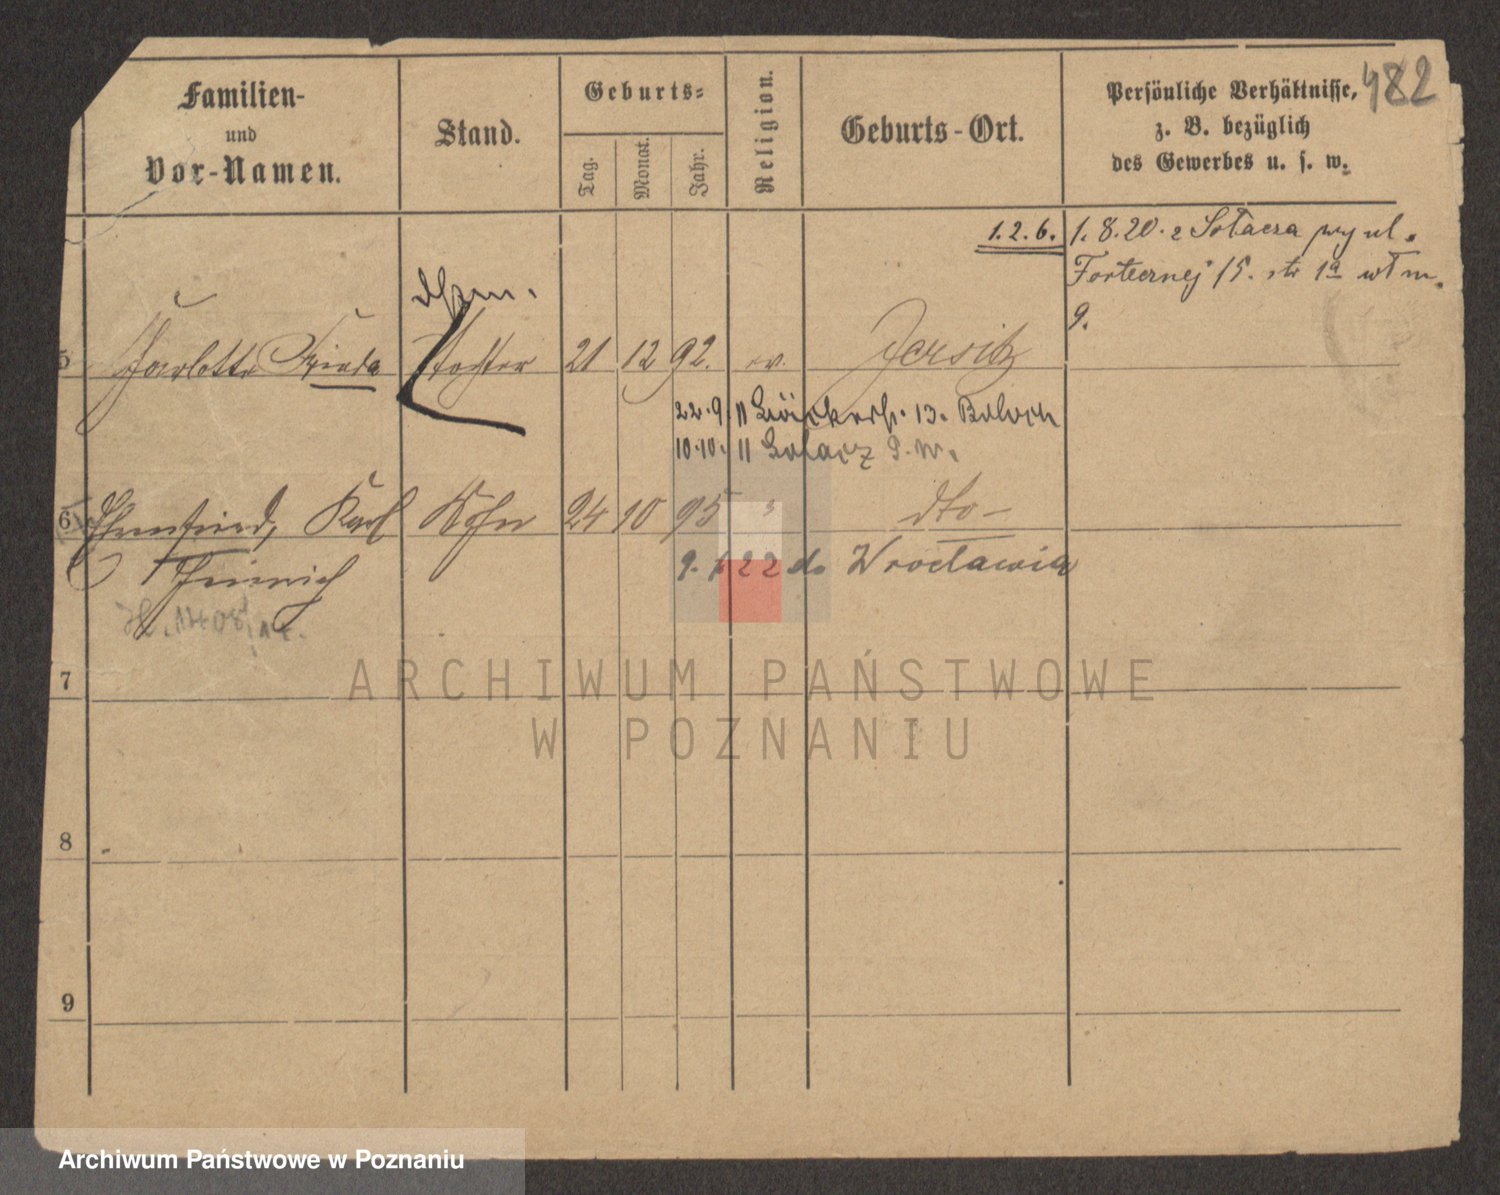 Familien-
und
Vor-Namen.
Stand.
Geburts-
Tag.
Monat.
Jahr.
Religion.
Geburts-Ort.
Persönliche Verhältnisse,
z. B. bezüglich
des Gewerbes u. s. w.
482
1.2.6. 1.8.20. z Sołacza przy ul.
Fortecznej 15. str 1a wł m.
9.
5 Charlotte Frieda Tochter 21 12 92. ev. Jersitz
22.9. 11 13. Boloch
10.10. 11 Solacz P. W.
6 Ehrenfried, Karl Sohn 24 10 95 " dto-
Heinrich
9. 22 do Wrocławia
7
8
9
ARCHIWUM PAŃSTWOWE
W POZNANIU
Archiwum Państwowe w Poznaniu